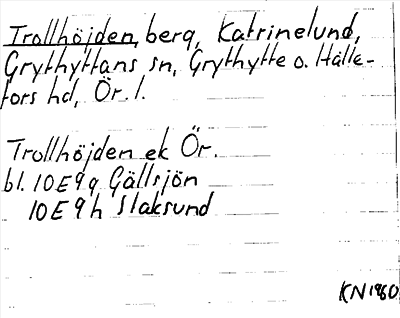 Trollhöjden, berg, Katrinelund,
Grythyttans sn, Grythytte o. Hälle-
fors hd, Ör. l.
Trollhöjden ek Ör.
bl. 10E9g Gällsjön
10E9h Slaksund
KN1960